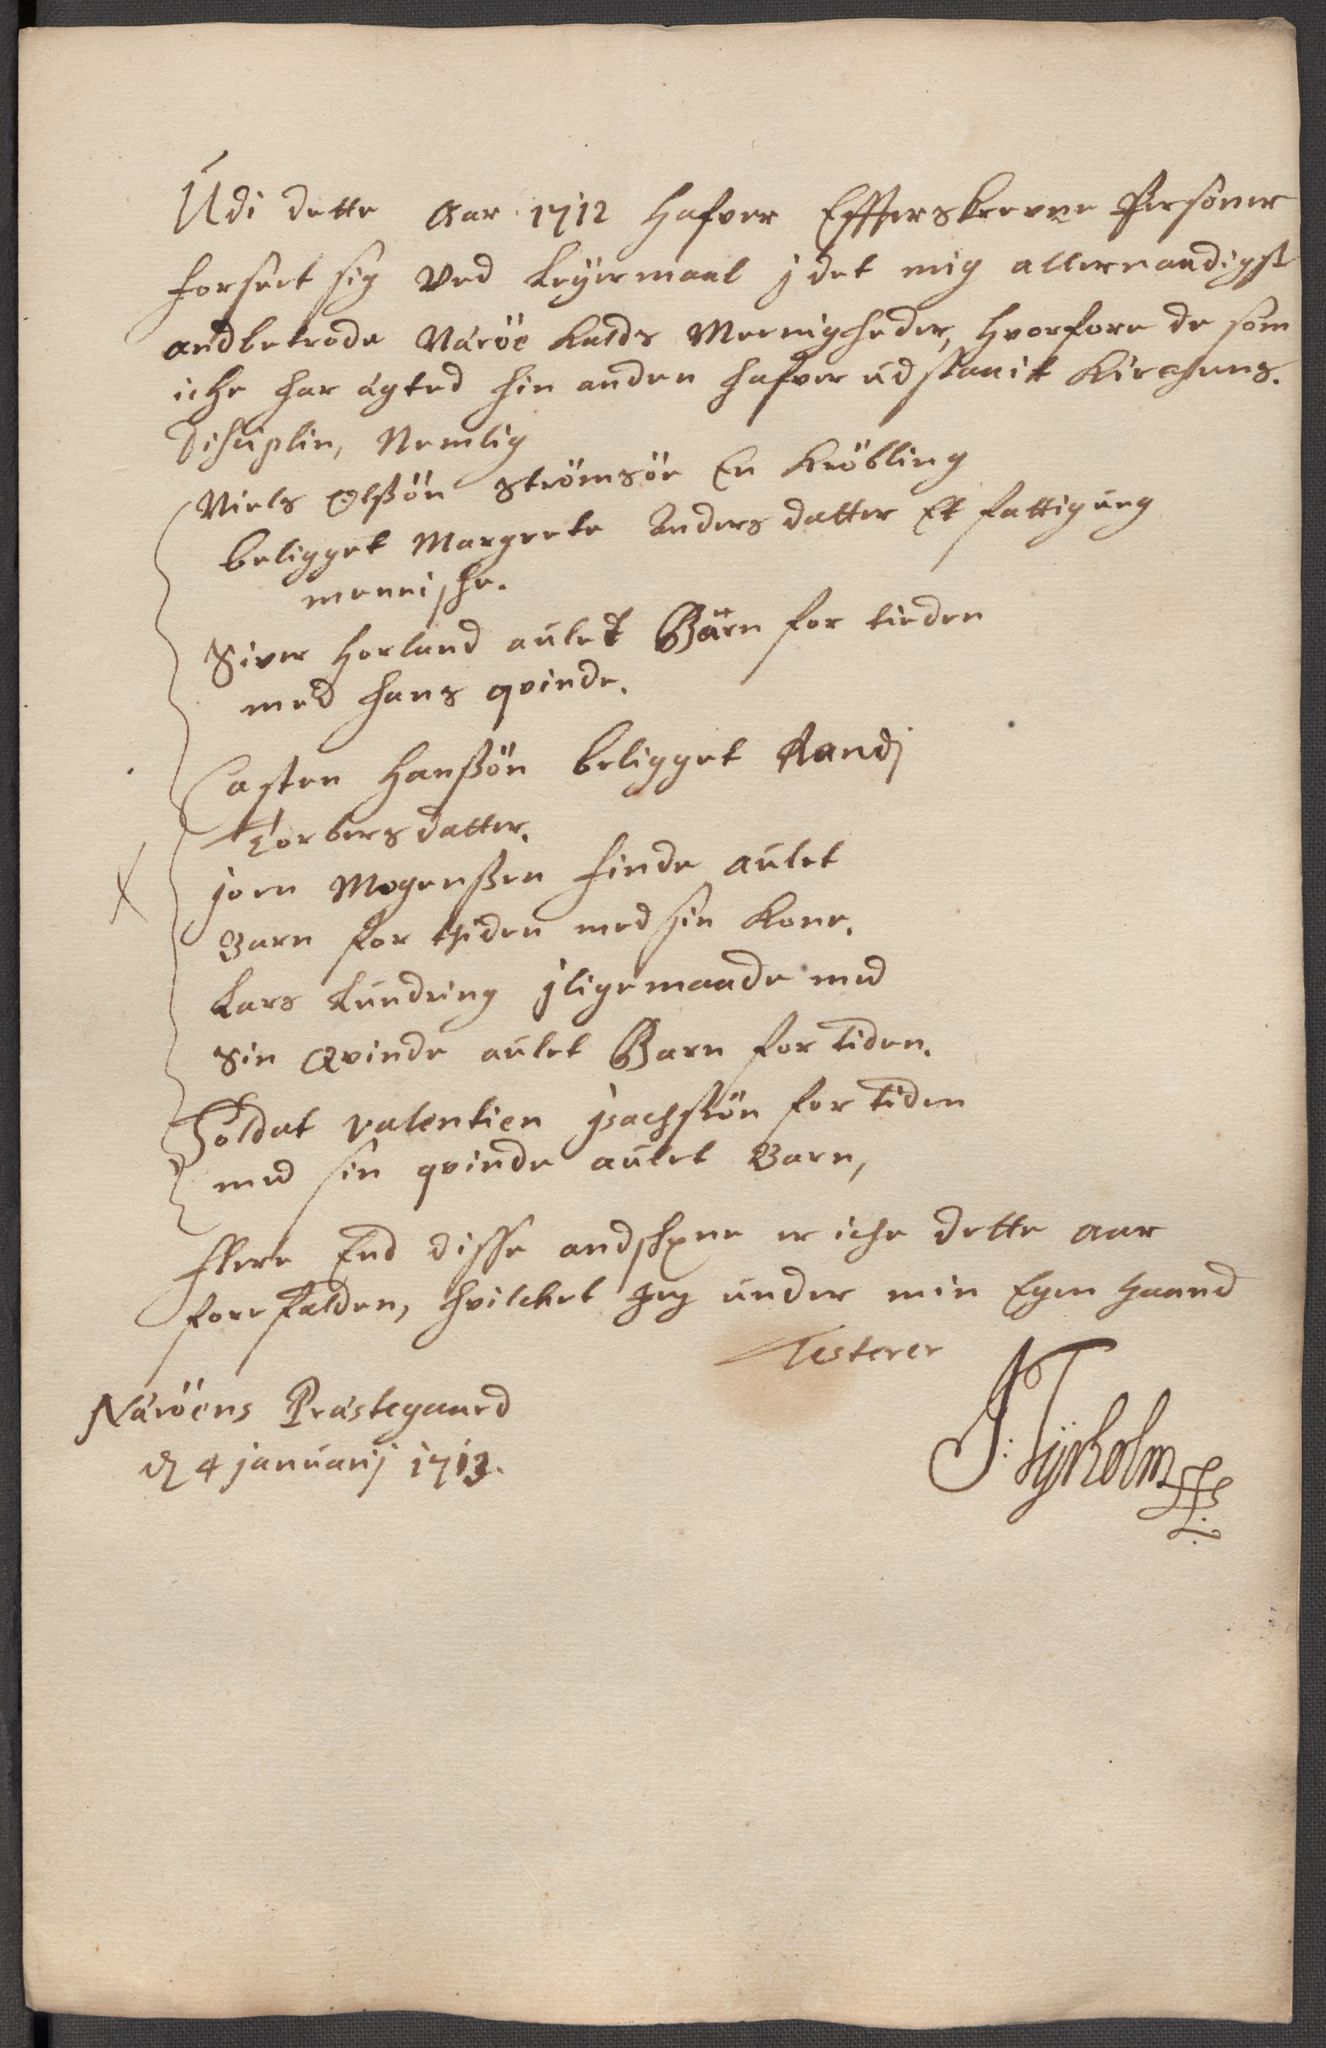 Udi dette Aar 1712 Hafver Effterskrevne Personer
forseet sig ved Leyermaal j det mig allernaadigst
andbetrode Näröe Kalds Meenigheder, hvorfore de som
iche har ägted hin anden hafver udstaait Kirchens
Disciplin, Nemlig
Niels Olßön Strömsöe En Kröbling
beligget Margrete Anders datter Et fattig ung
menniske.
Siver Horland aulet Barn for tieden
med hans qvinde.
Casten Hanßön beligget Randj
Torbersdatter.
joen Mogenßen finde aulet
Barn for tiden med sin Kone.
Lars Lundring jligemaade med
sin Qvinde aulet Barn for tiden.
Soldat valentien jsachßön for tiden
med sin qvinde aulet Barn,
flere End disse er iche dette aar
forefalden, hvilchet jeg under min Egen Haand
Testerer
Näröens Prästegaard
d 4 januarij 1713.
J: Tyrholm